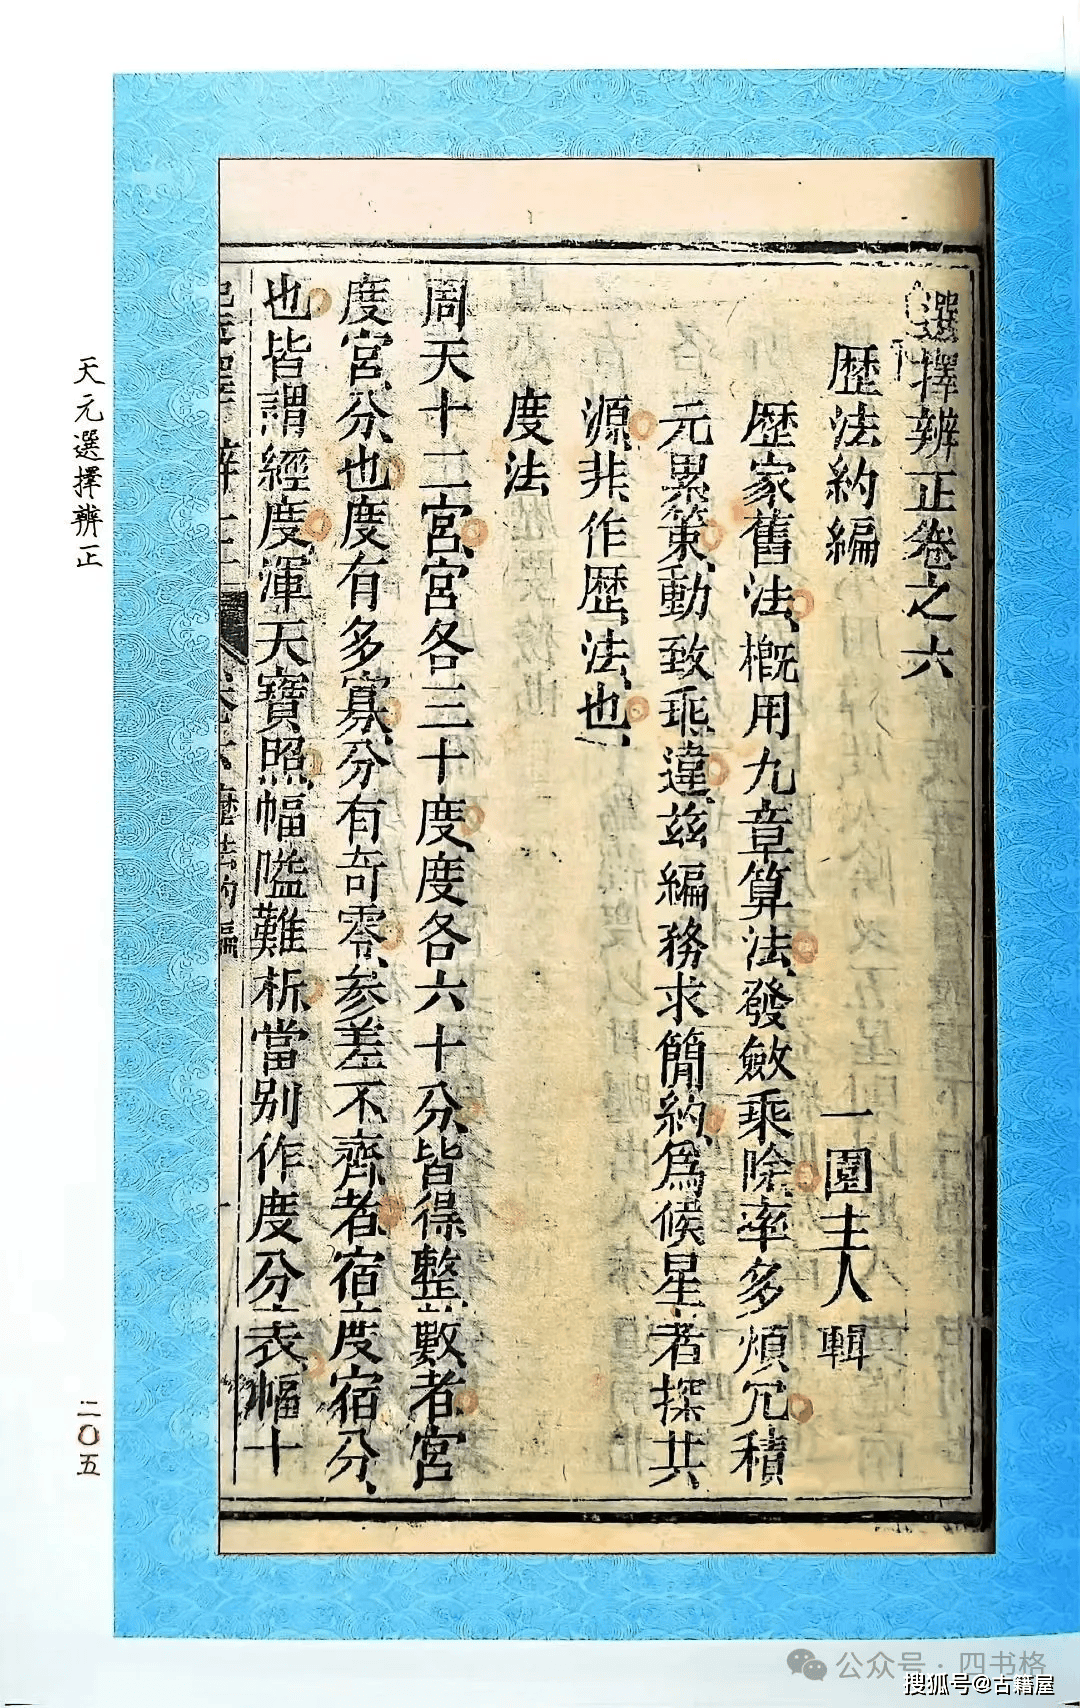 選擇辨正卷之六
歴法約編
一園主人輯
歴家舊法、概用九章算法、發斂乘除、率多煩冗、積
元累策、動致乖違、茲編務求簡約、爲候星者探其
源、非作歴法也、
度法
周天十二宮、宮各三十度、度各六十分、皆得整數者、宮
度宮分、也、度有多寡、分有奇零、參差不齊者、宿度宿分、
也、皆謂經度、渾天寶照、幅嗌難析、當别作度分表、幅十
卷六 歴法約編
天元選擇辨正
二〇五
公众号·四书格
搜狐号@古籍屋